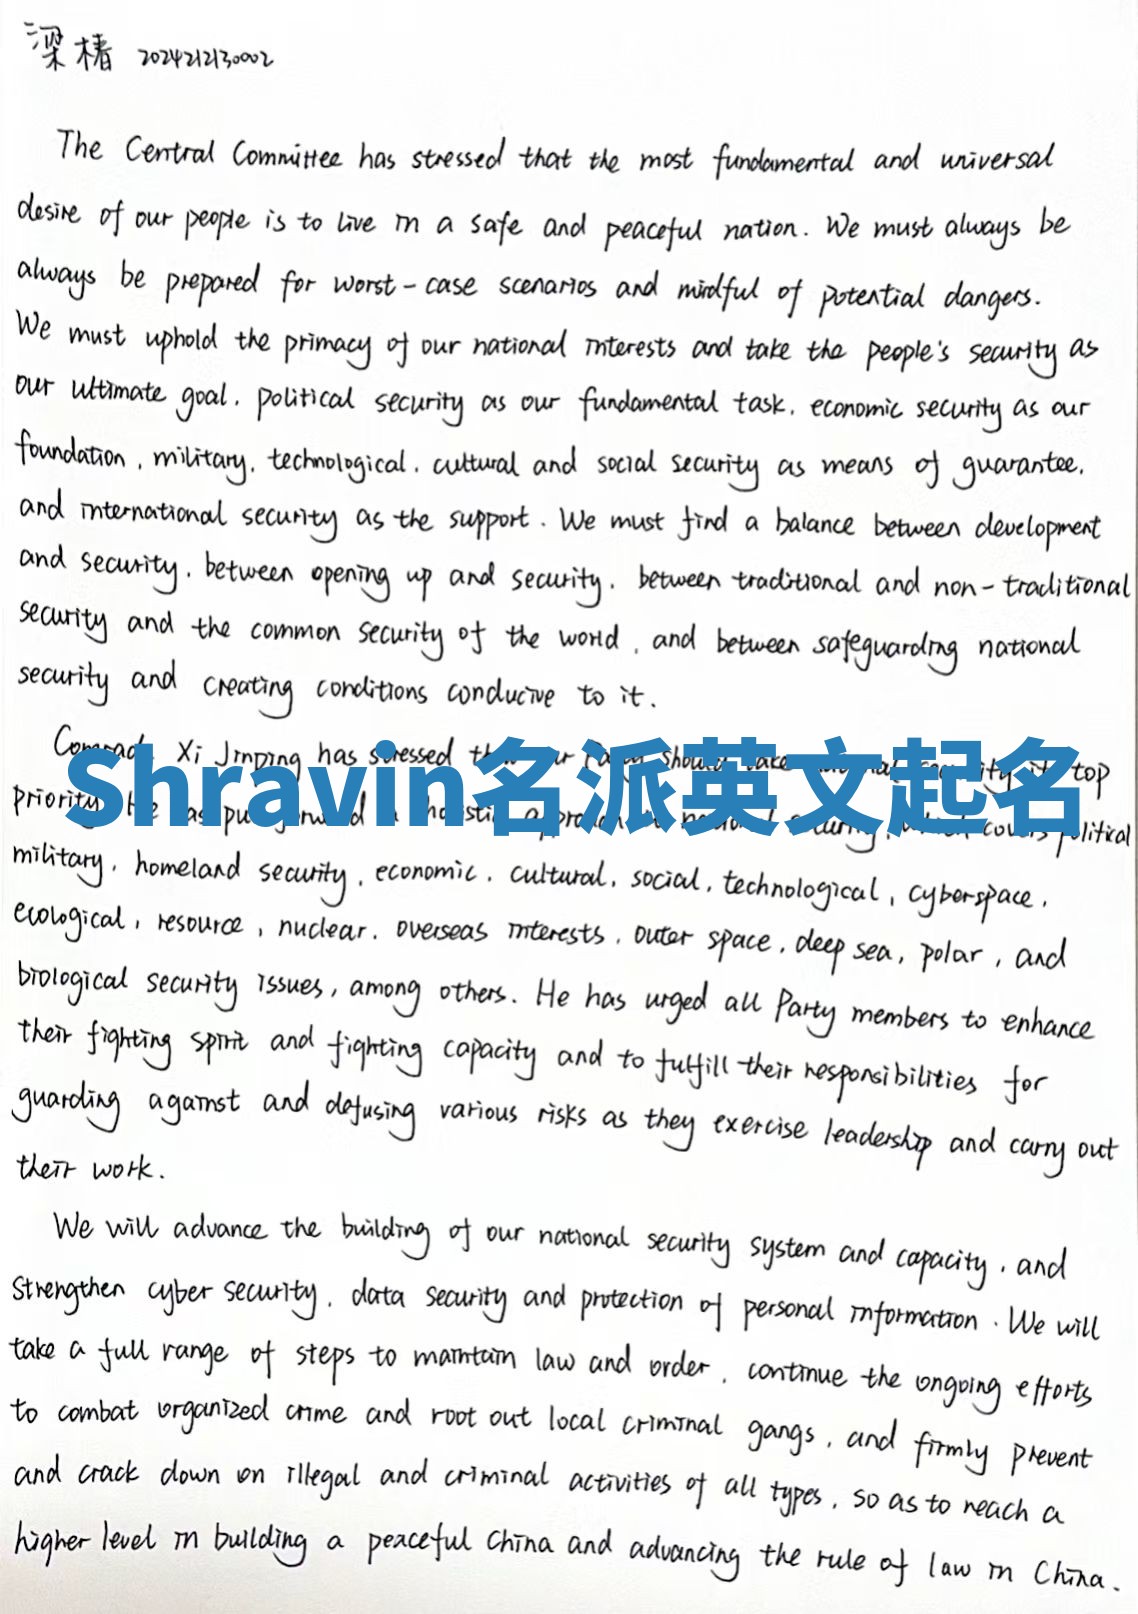 梁椿 2024212130002
The Central Committee has stressed that the most fundamental and universal
desire of our people is to live in a safe and peaceful nation. We must always be
always be prepared for worst-case scenarios and mindful of potential dangers.
We must uphold the primacy of our national interests and take the people's security as
our ultimate goal, political security as our fundamental task, economic security as our
foundation, military, technological, cultural and social security as means of guarantee,
and international security as the support. We must find a balance between development
and security, between opening up and security, between traditional and non-traditional
security and the common security of the world, and between safeguarding national
security and creating conditions conducive to it.
Xi Jinping has stressed top
Shravin名派英文起名
priority. He political
military, homeland security, economic, cultural, social, technological, cyberspace,
ecological, resource, nuclear, overseas interests, outer space, deep sea, polar, and
biological security issues, among others. He has urged all Party members to enhance
their fighting spirit and fighting capacity and to fulfill their responsibilities for
guarding against and defusing various risks as they exercise leadership and carry out
their work.
We will advance the building of our national security system and capacity, and
strengthen cyber security, data security and protection of personal information. We will
take a full range of steps to maintain law and order, continue the ongoing efforts
to combat organized crime and root out local criminal gangs, and firmly prevent
and crack down on illegal and criminal activities of all types, so as to reach a
higher level in building a peaceful China and advancing the rule of law in China.